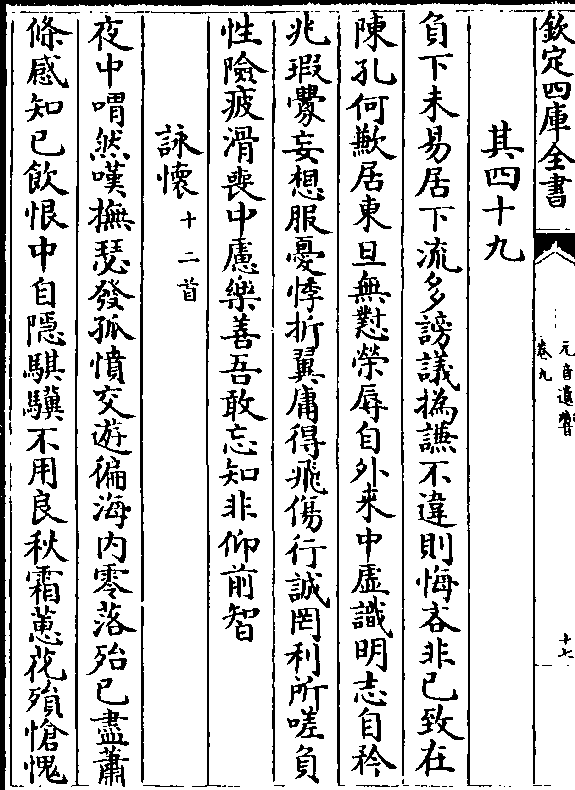 欽定四庫全書
元音遺響
卷九
十七
其四十九
負下未易居下流多謗議撝謙不違則悔吝非已致在
陳孔何歉居東旦無懟榮辱自外来中虚識明志自矜
兆瑕釁妄想服憂悸折翼庸得飛傷行誠罔利所嗟負
性險疲滑喪中慮樂善吾敢忘知非仰前智
詠懷十二首
夜中喟然嘆撫瑟發孤憤交遊徧海内零落殆已盡蕭
條感知已飲恨中自隱騏驥不用良秋霜蕙花殞愴愧